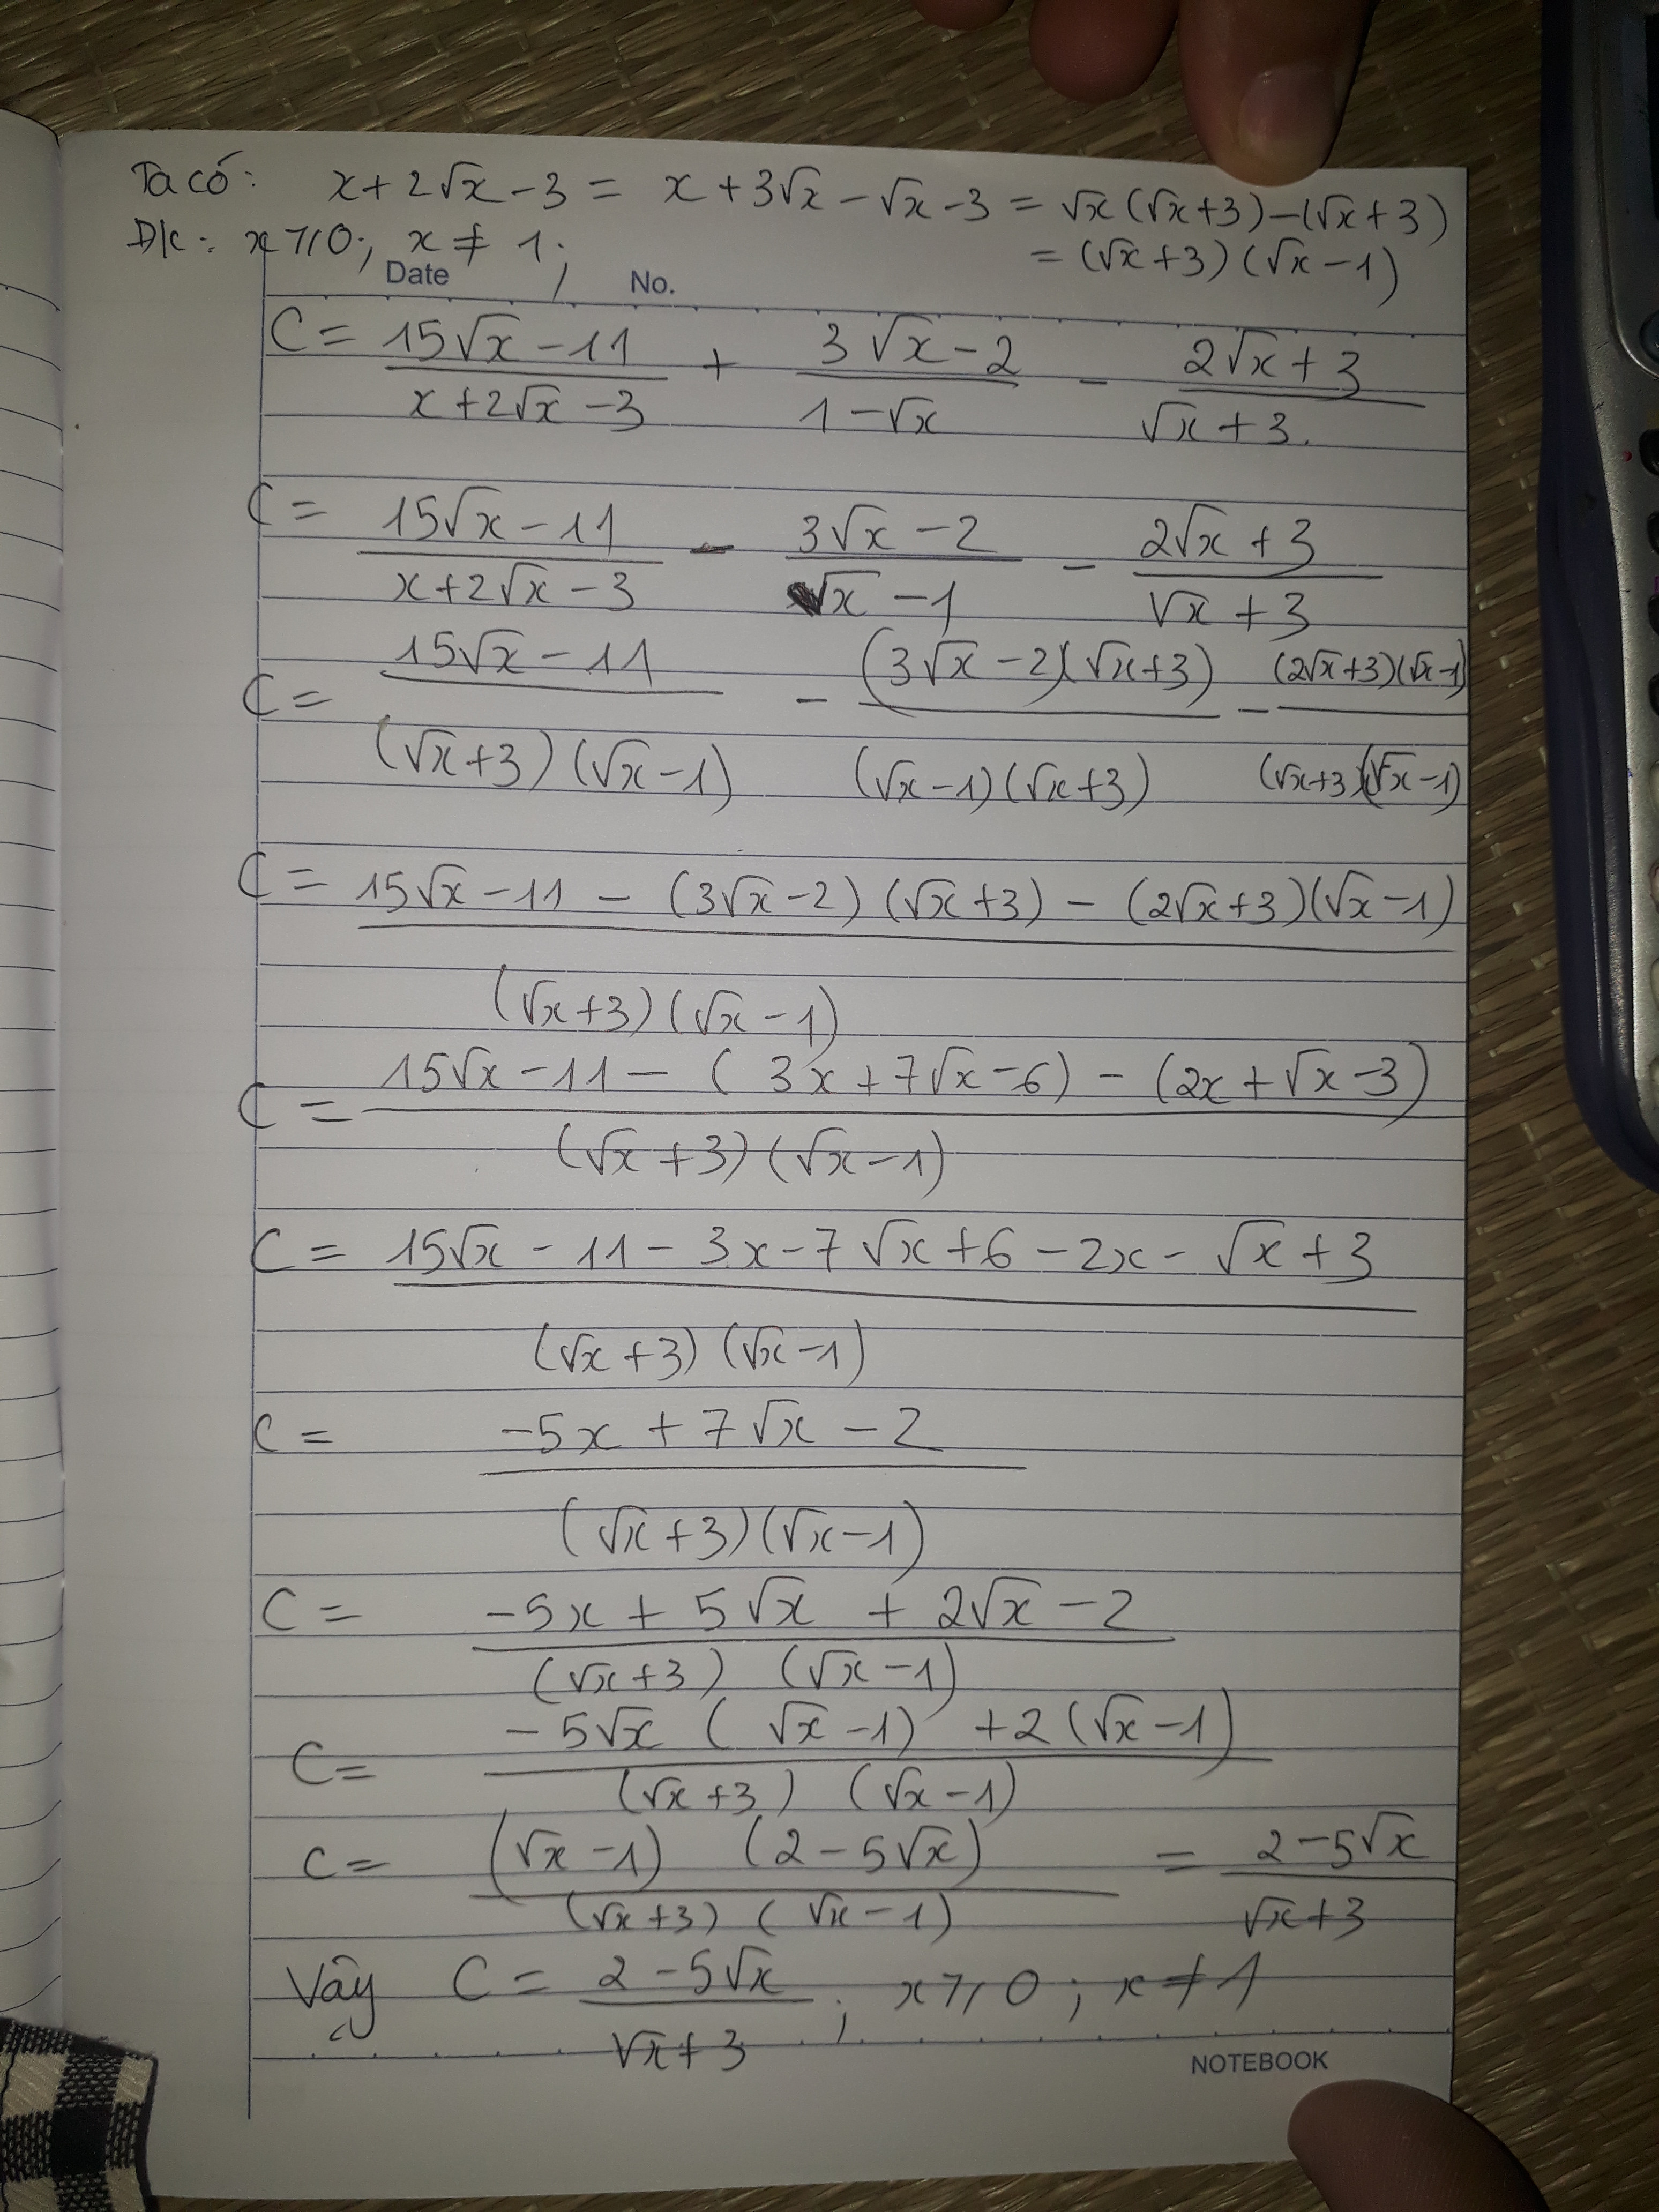 Ta có: x + 2√x - 3 = x + 3√x - √x - 3 = √x (√x + 3) - (√x + 3)
Đ/c: x ⩾ 0; x ≠ 1; = (√x + 3) (√x - 1)
Date No.
C = (15√x - 11)/(x + 2√x - 3) + (3√x - 2)/(1 - √x) - (2√x + 3)/(√x + 3).
C = (15√x - 11)/(x + 2√x - 3) - (3√x - 2)/(√x - 1) - (2√x + 3)/(√x + 3)
C = (15√x - 11)/((√x + 3)(√x - 1)) - ((3√x - 2)(√x + 3))/((√x - 1)(√x + 3)) - ((2√x + 3)(√x - 1))/((√x + 3)(√x - 1))
C = (15√x - 11 - (3√x - 2)(√x + 3) - (2√x + 3)(√x - 1))/((√x + 3)(√x - 1))
C = (15√x - 11 - (3x + 7√x - 6) - (2x + √x - 3))/((√x + 3)(√x - 1))
C = (15√x - 11 - 3x - 7√x + 6 - 2x - √x + 3)/((√x + 3)(√x - 1))
C = (-5x + 7√x - 2)/((√x + 3)(√x - 1))
C = (-5x + 5√x + 2√x - 2)/((√x + 3)(√x - 1))
C = (-5√x (√x - 1) + 2(√x - 1))/((√x + 3)(√x - 1))
C = ((√x - 1)(2 - 5√x))/((√x + 3)(√x - 1)) = (2 - 5√x)/(√x + 3)
Vậy C = (2 - 5√x)/(√x + 3); x ⩾ 0; x ≠ 1
NOTEBOOK